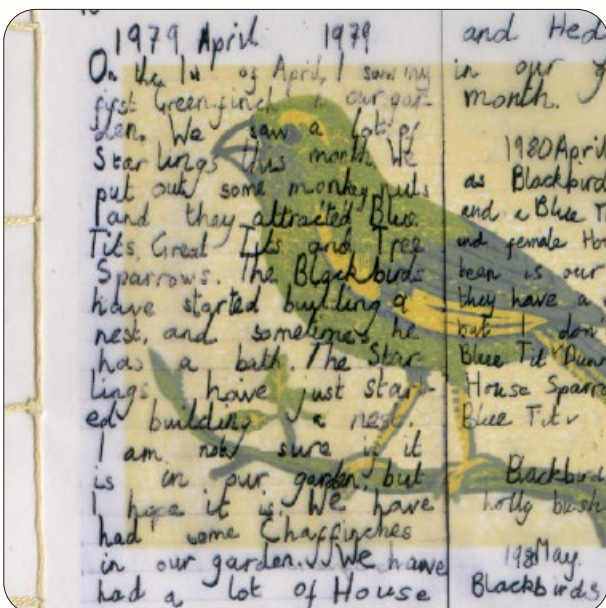 1979 April 1979
On the 1st of April, I saw my
first Greenfinch in our gar-
den. We saw a lot of
Starlings this month. We
put out some monkey nuts
and they attracted Blue
Tits, Great Tits and Tree
Sparrows. The Blackbirds
have started building a
nest, and sometimes he
has a bath. The Star
lings have just star-
ed building a nest.
I am not sure if it
is in our garden, but
I hope it is. We have
had some Chaffinches
in our garden. We have
had a lot of House
and Hed
in our g
month.
1980 April
as Blackbird
and a Blue T
and female Ho
been is our
they have a
but I don
Blue Tit Dun
House Sparro
Blue Tit
Blackbird
holly bush
198 May
Blackbirds